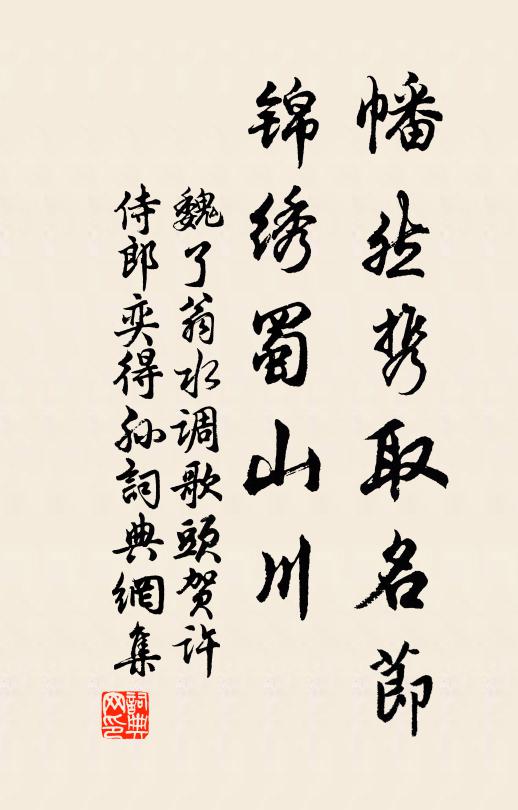 幡然携取名节
锦绣蜀山川
魏了翁水调歌頭贺许
侍郎奕得孙詞典網集
詞典网印